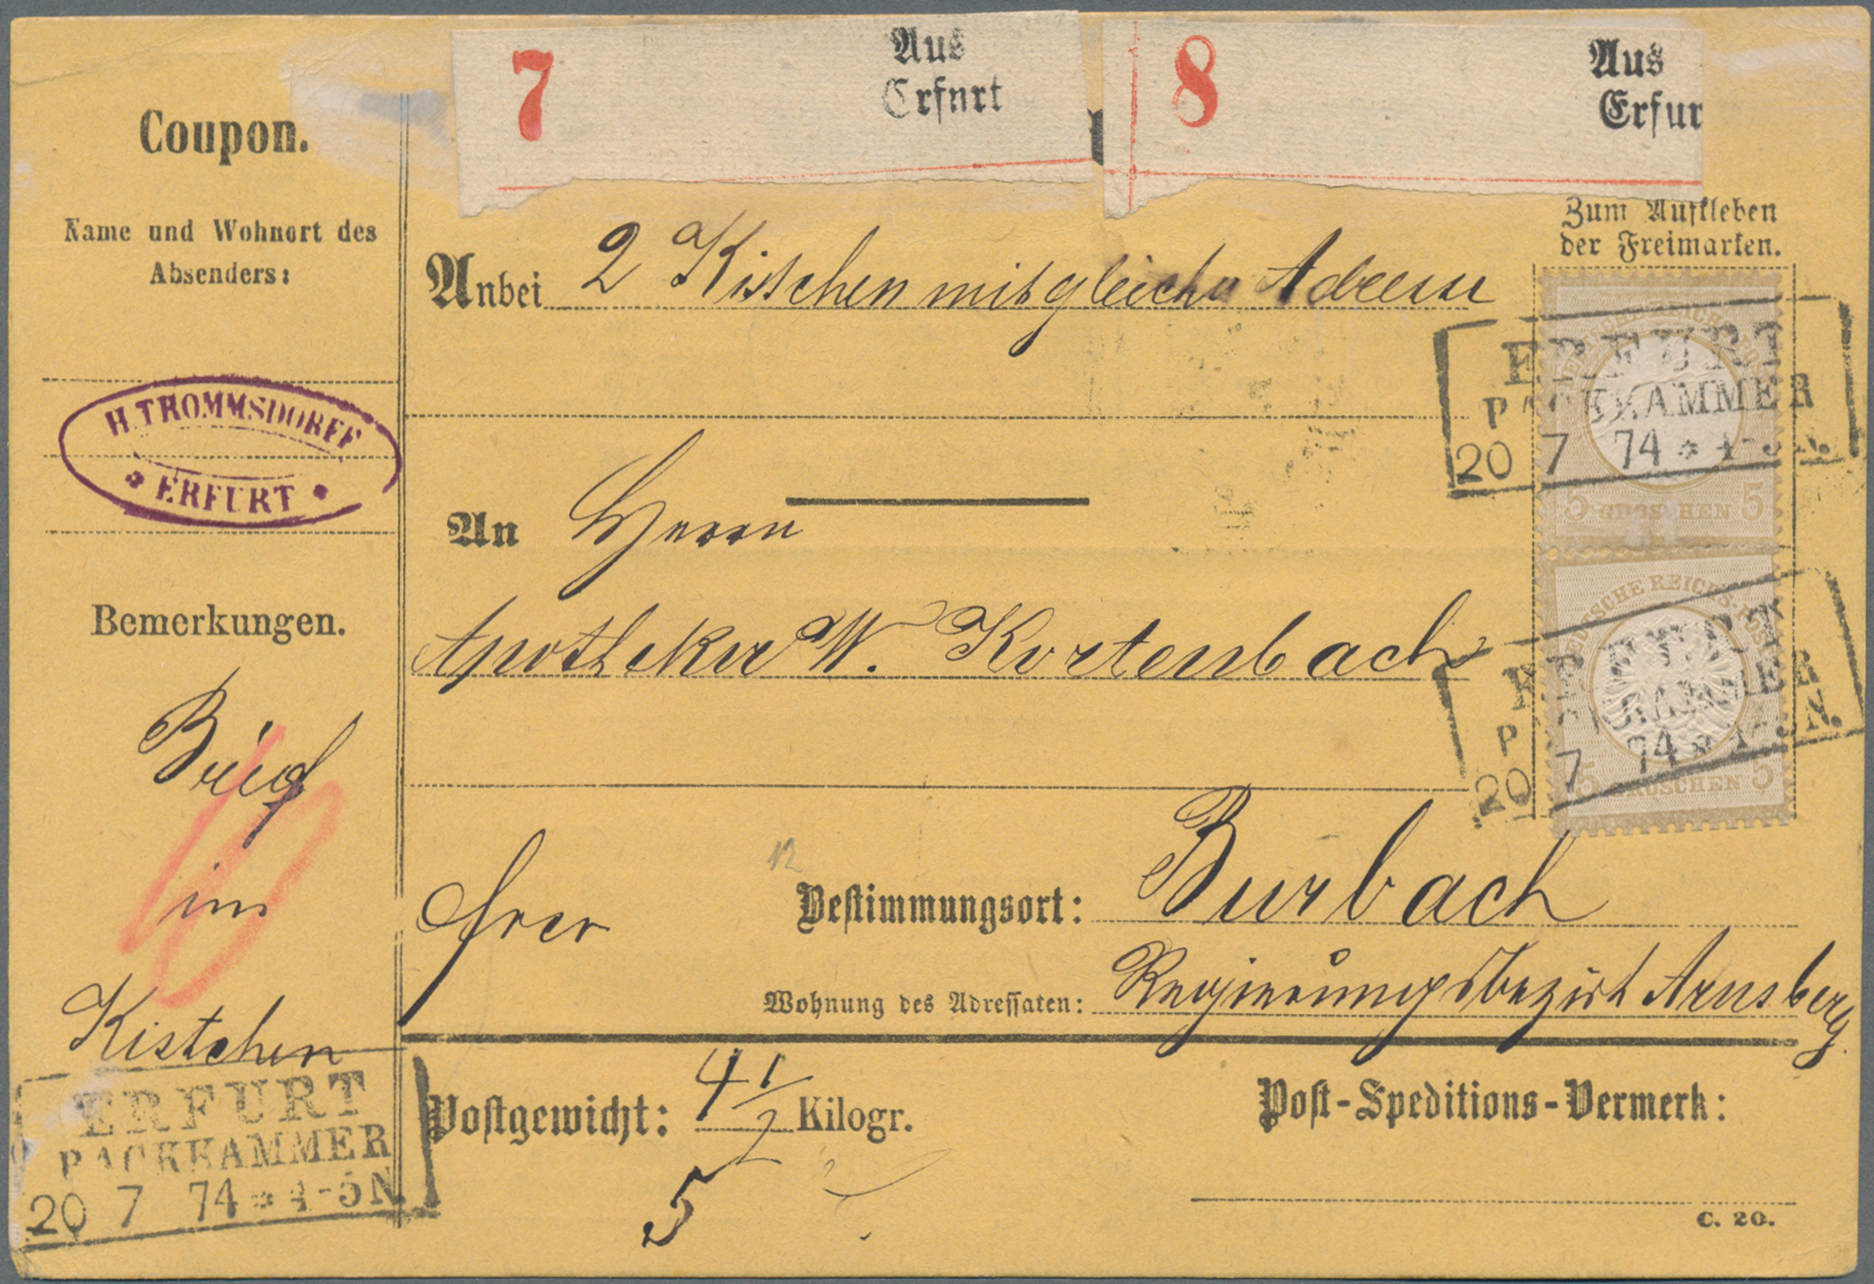 7
Aus
Erfurt
8
Aus
Erfur
Coupon.
Name und Wohnort des
Absenders:
H. TROMMSDORFF
ERFURT
Bemerkungen.
Brief
im
Kistchen
ERFURT
PACKKAMMER
20 7 74 * 4-5 N.
Zum Aufkleben
der Freimarken.
Anbei 2 Kistchen mit gleicher Adresse
An Herrn
Apotheker W. Kortenbach
frco
Bestimmungsort: Burbach
Wohnung des Adressaten: Regierungsbezirk Arnsberg.
Postgewicht: 4 1/2 Kilogr.
5
Post-Speditions-Vermerk:
C. 20.
ERFURT
PACKKAMMER
20 7 74 * 4-5 N.
5 GROSCHEN 5
DEUTSCHE REICHS-POST
ERFURT
PACKKAMMER
20 7 74 * 4-5 N.
5 GROSCHEN 5
12